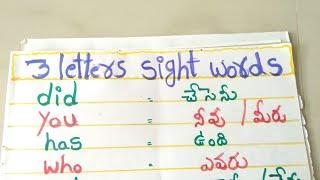 3 letters sight words
did = చేసెను
you = నీవు / మీరు
has = ఉంది
who = ఎవరు